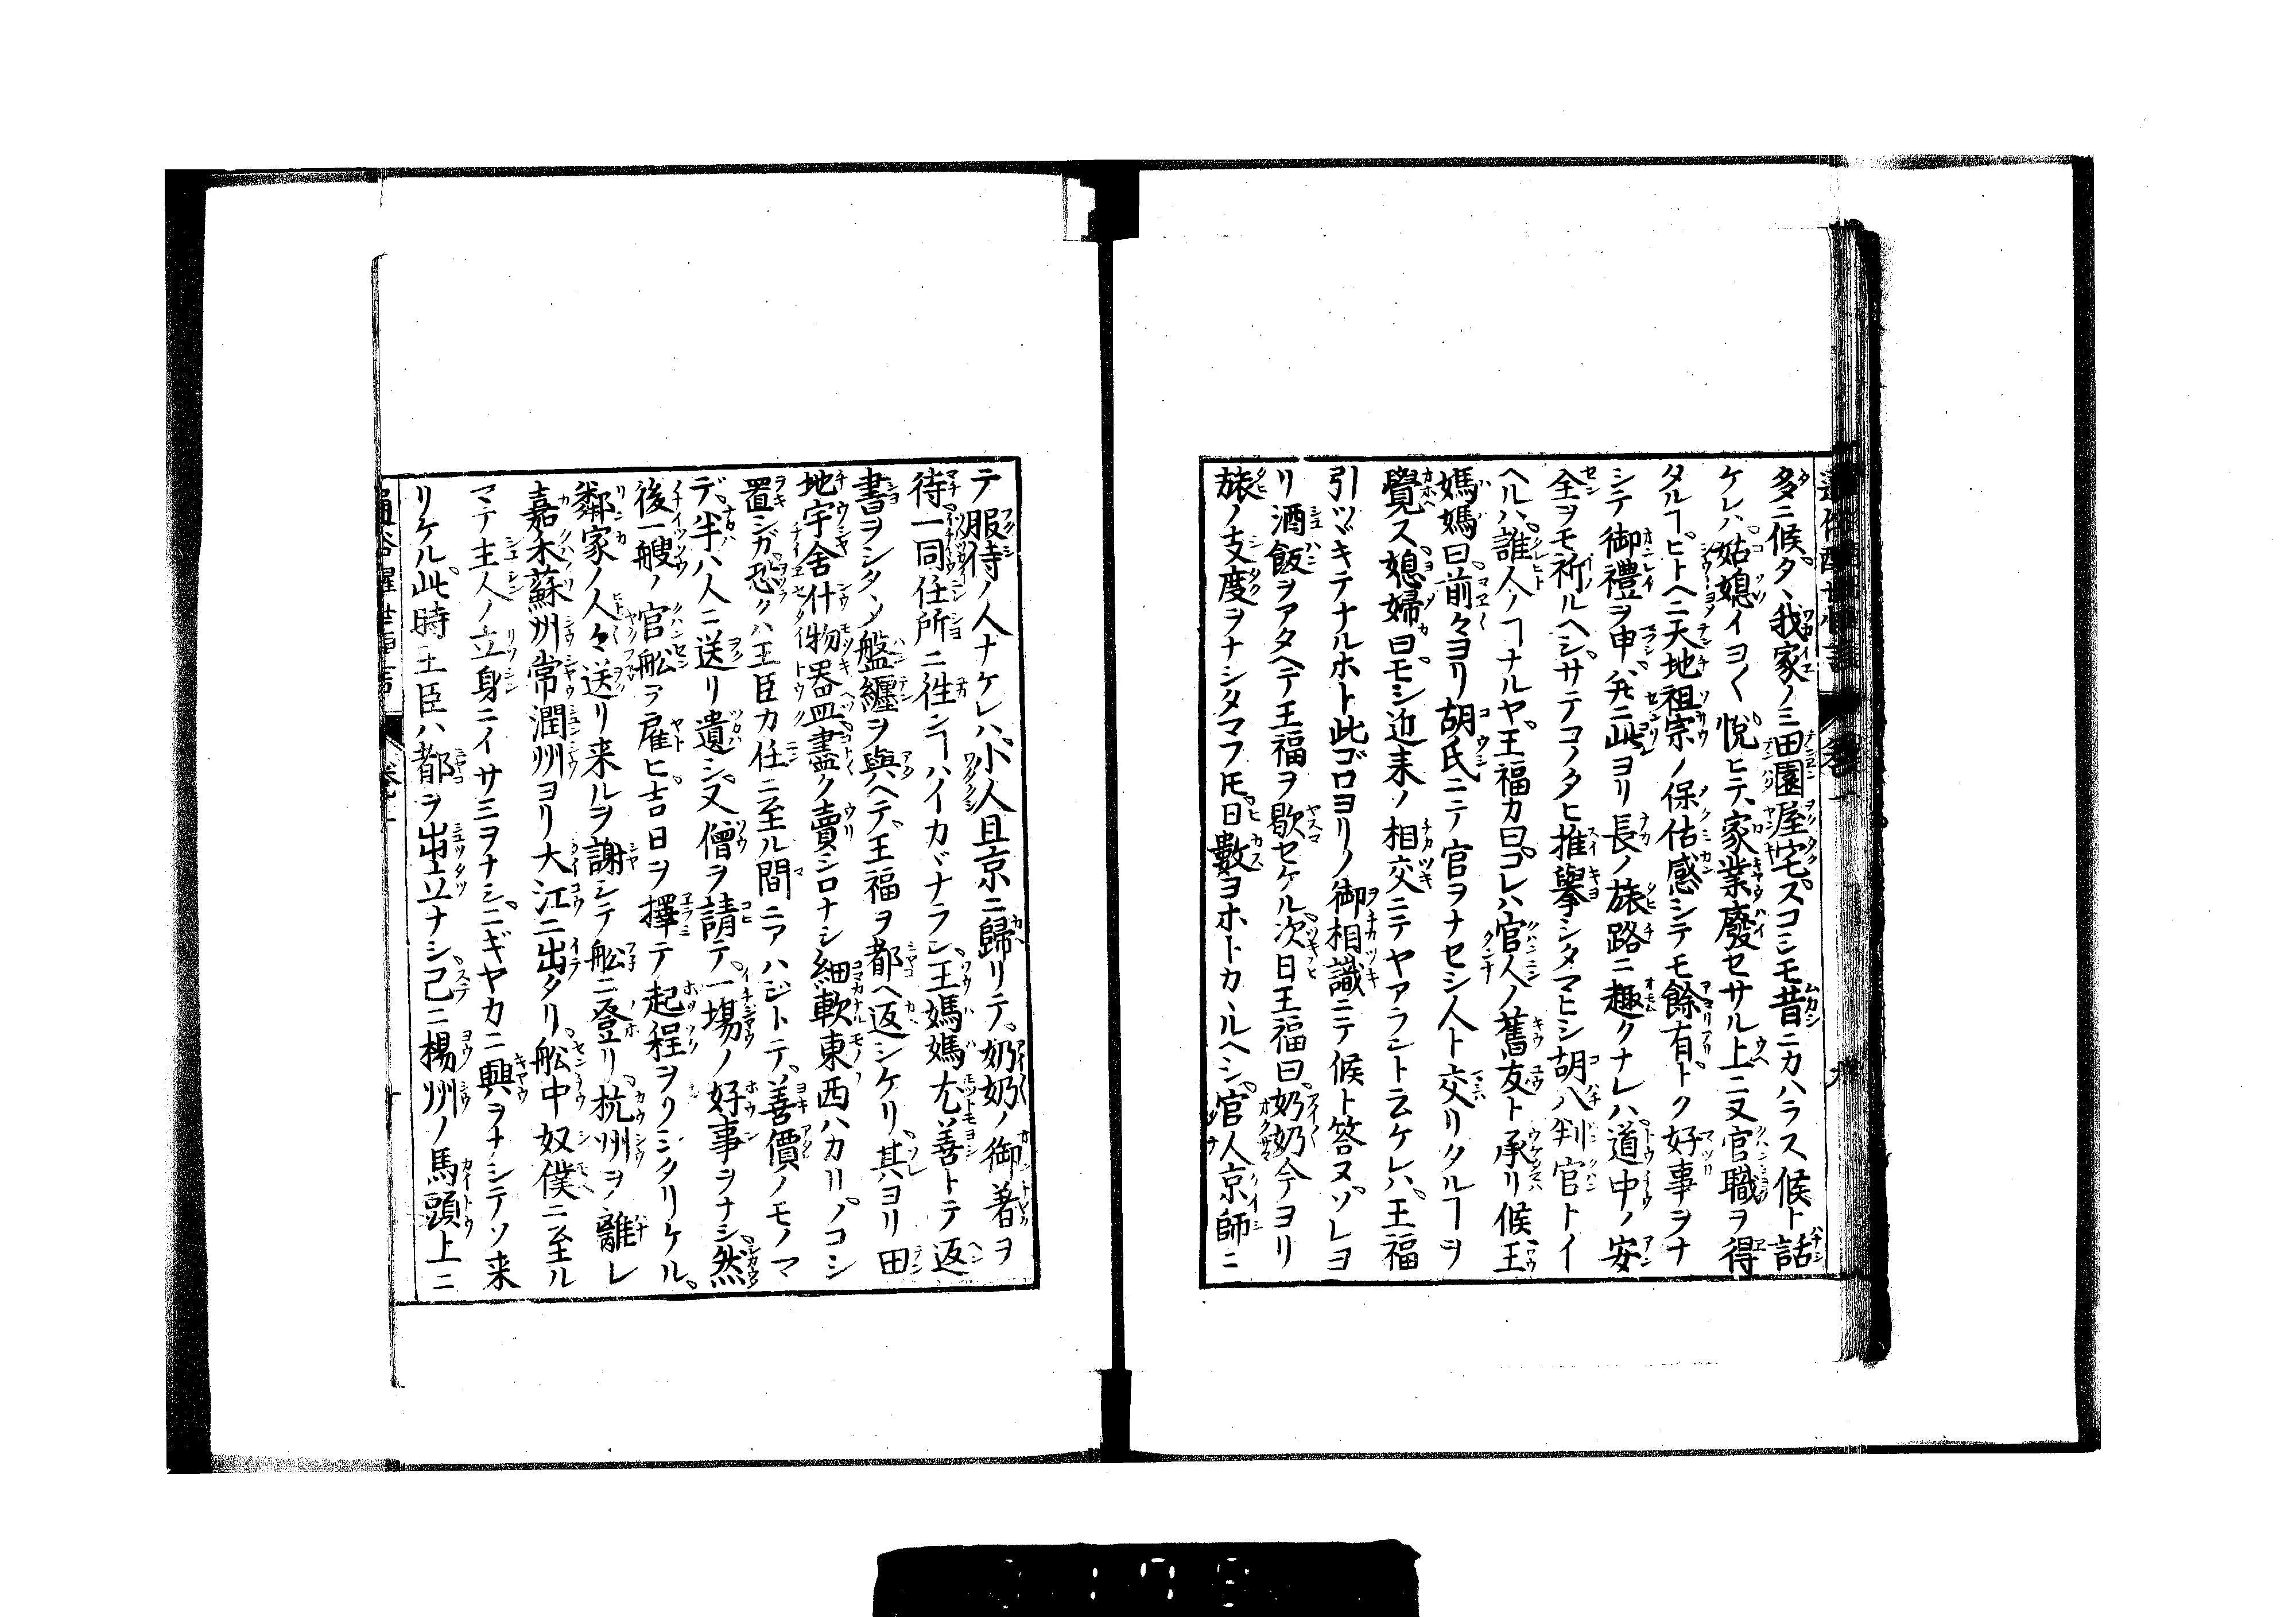 多ニ候タヽ我家ノミ田園屋宅スコシモ昔ニカハラス候ト話
ケレハ姑媳イヨ〱悦ヒテ家業廢セサル上ニ又官職ヲ得
タルヿヒトヘニ天地祖宗ノ保佑感シテモ餘有トク好事ヲナ
シテ御禮ヲ申シ此ヨリ長ノ旅路ニ趣クナレハ道中ノ安
全ヲモ祈ルヘシサテコノタヒ推擧シタマヒシ胡八判官トイ
ヘルハ誰人ノヿナルヤ王福カ曰コレハ官人ノ舊友ト承リ候王
媽媽曰前々ヨリ胡氏ニテ官ヲナセシ人ト交リタルヿヲ
覺ス媳婦曰モシ近来ノ相交ニテヤアラント云ケレハ王福
引ツヾキテナルホト此ゴロヨリノ御相識ニテ候ト答ヌソレヨ
リ酒飯ヲアタヘテ王福ヲ歇セケル次日王福曰奶奶今ヨリ
旅ノ支度ヲナシタマフ𪜈日數ヨホトカヽルヘシ官人京師ニ
テ服侍ノ人ナケレハ小人且京ニ歸リテ奶奶ノ御著ヲ
待一同任所ニ徃ンヿハイカヾナラン王媽媽尤善トテ返
書ヲシタヽメ盤纏ヲ與ヘテ王福ヲ都ヘ返シケリ其ヨリ田
地宇舍什物器皿盡ク賣シロナシ細軟東西ハカリノコシ
置シガ恐クハ王臣カ任ニ至ル間ニアハジトテ善價ノモノマ
デ半ハ人ニ送リ遺シ又僧ヲ請テ一場ノ好事ヲナシ然
後一艘ノ官舩ヲ雇ヒ吉日ヲ擇テ起程ヲソシタリケル
鄰家ノ人々送リ来ルヲ謝シテ舩ニ登リ杭州ヲ離レ
嘉禾蘇州常潤州ヨリ大江ニ出タリ舩中奴僕ニ至ル
マテ主人ノ立身ニイサミヲナシニギヤカニ興ヲナシテソ来
リケル此時王臣ハ都ヲ出立ナシ已ニ楊州ノ馬頭上ニ